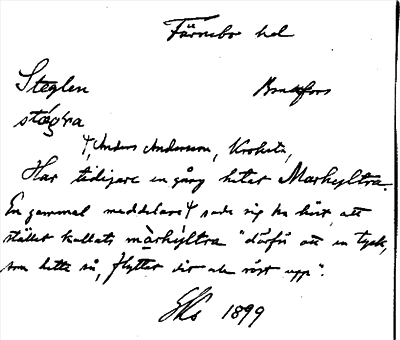 Färnebo hd
Steglen Bruksfors
stægra
4, Anders Andersson, Krokstu,
Har tidigare en gång hetat Markyltra.
En gammal meddelare 4 sade sig ha hört, att
stället kallats màrkyltra "därför att en tysk,
som hette så, flyttat dit ock röst upp".
EHs 1899